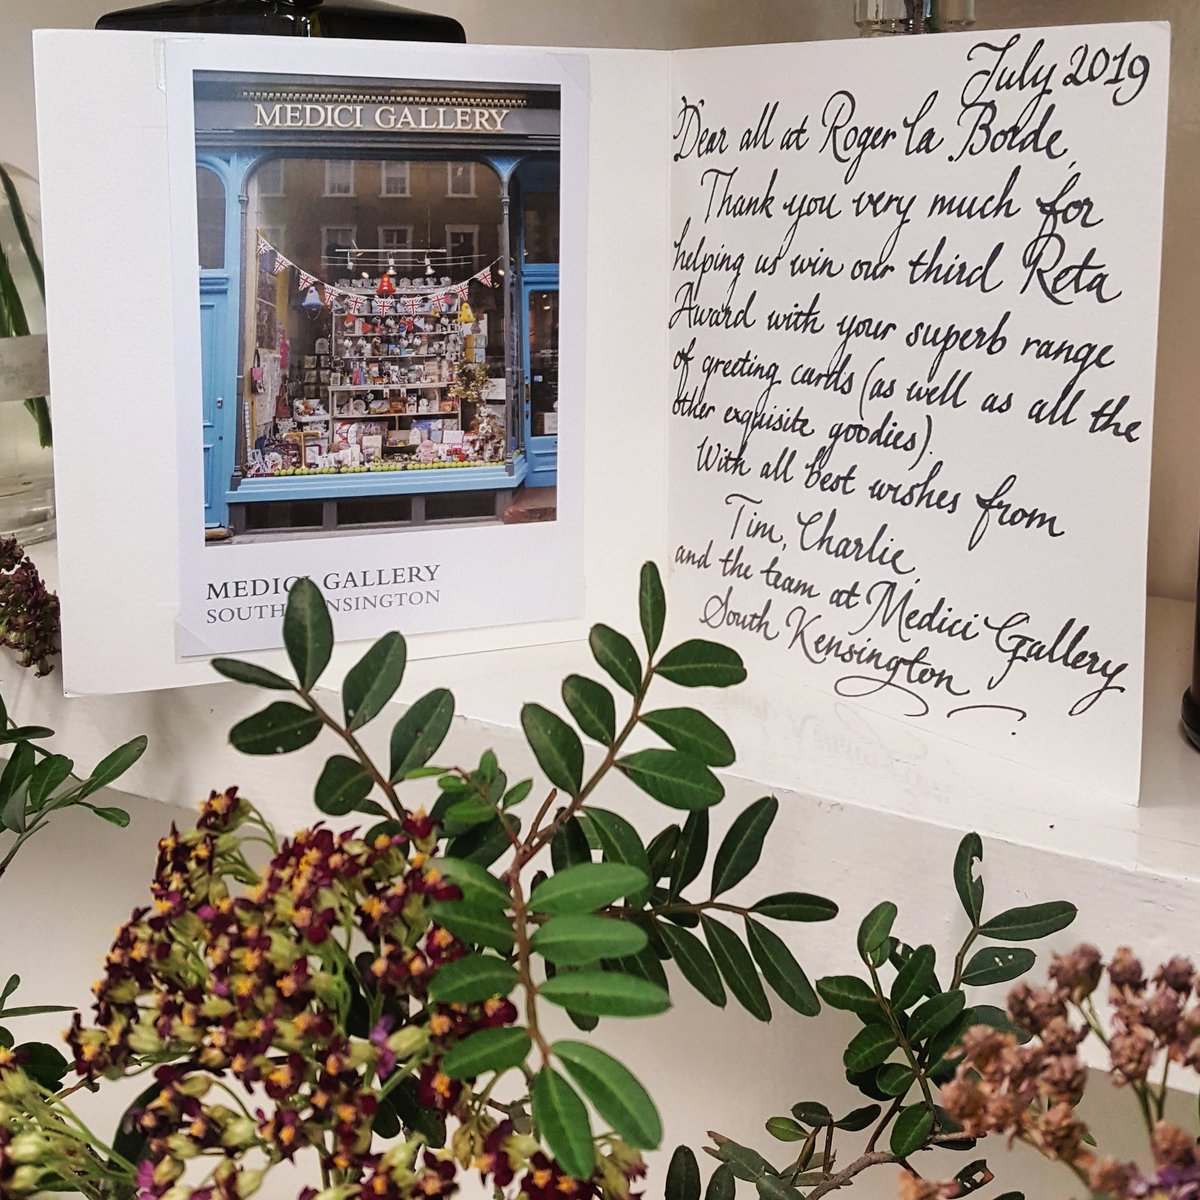 MEDICI GALLERY
MEDICI GALLERY
SOUTH KENSINGTON
July 2019
Dear all at Roger la Borde,
Thank you very much for
helping us win our third Reta
Award with your superb range
of greeting cards (as well as all the
other exquisite goodies).
With all best wishes from
Tim, Charlie,
and the team at Medici Gallery
South Kensington